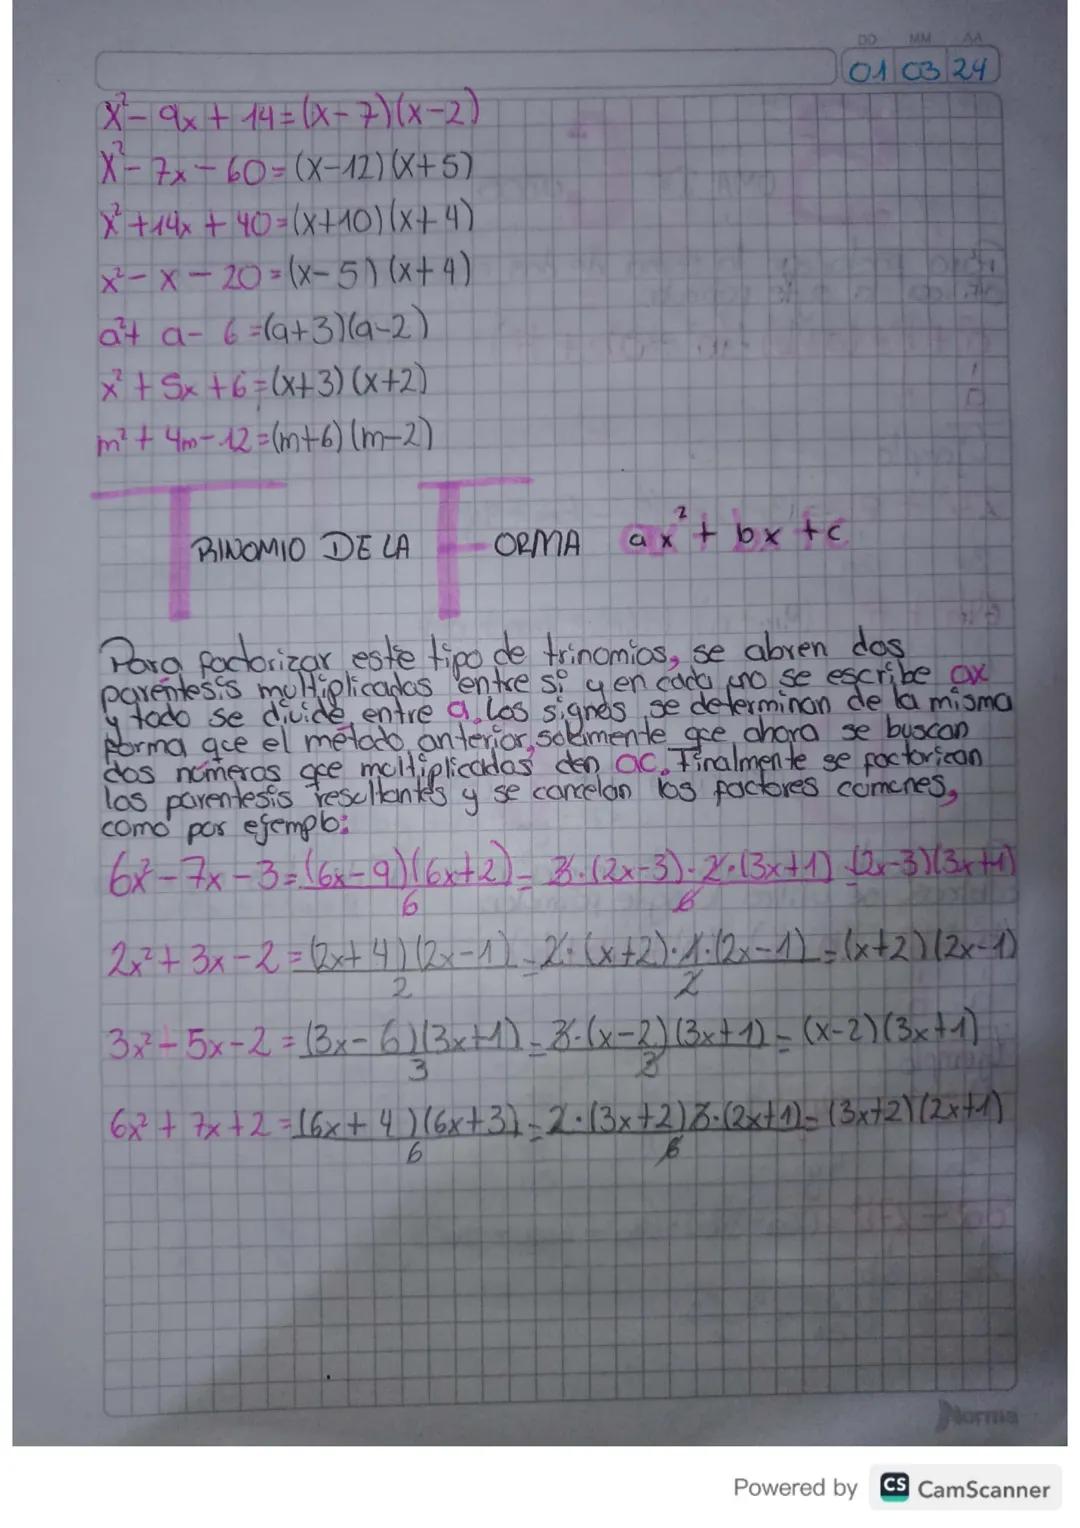 DD MM AA
01 03 24
x²- 9x + 14=(x-7)(x-2)
x²- 7x - 60=(x-12)(x+5)
x²+14x + 40=(x+10)(x+4)
x²- x - 20=(x-5)(x+4)
a²+ a- 6=(a+3)(a-2)
x²+ 5x +6=(x+3)(x+2)
m²+ 4m-12=(m+6)(m-2)
TRINOMIO DE LA FORMA ax²+ bx +c
Para factorizar este tipo de trinomios, se abren dos
paréntesis multiplicados entre sí y en cada uno se escribe ax
y todo se divide entre a. Los signos se determinan de la misma
forma que el método anterior, solamente que ahora se buscan
dos números que multiplicados den ac. Finalmente se factorizan
los parentesis resultantes y se cancelan los factores comunes,
como por ejemplo:
6x²-7x-3=(6x-9)(6x+2)/6=3·(2x-3)·2·(3x+1)/6=(2x-3)(3x+1)
2x²+3x-2=(2x+4)(2x-1)/2=2·(x+2)·1·(2x-1)/2=(x+2)(2x-1)
3x²-5x-2=(3x-6)(3x+1)/3=3·(x-2)(3x+1)/3=(x-2)(3x+1)
6x²+7x+2=(6x+4)(6x+3)/6=2·(3x+2)3·(2x+1)/6=(3x+2)(2x+1)
Norma
Powered by CS CamScanner